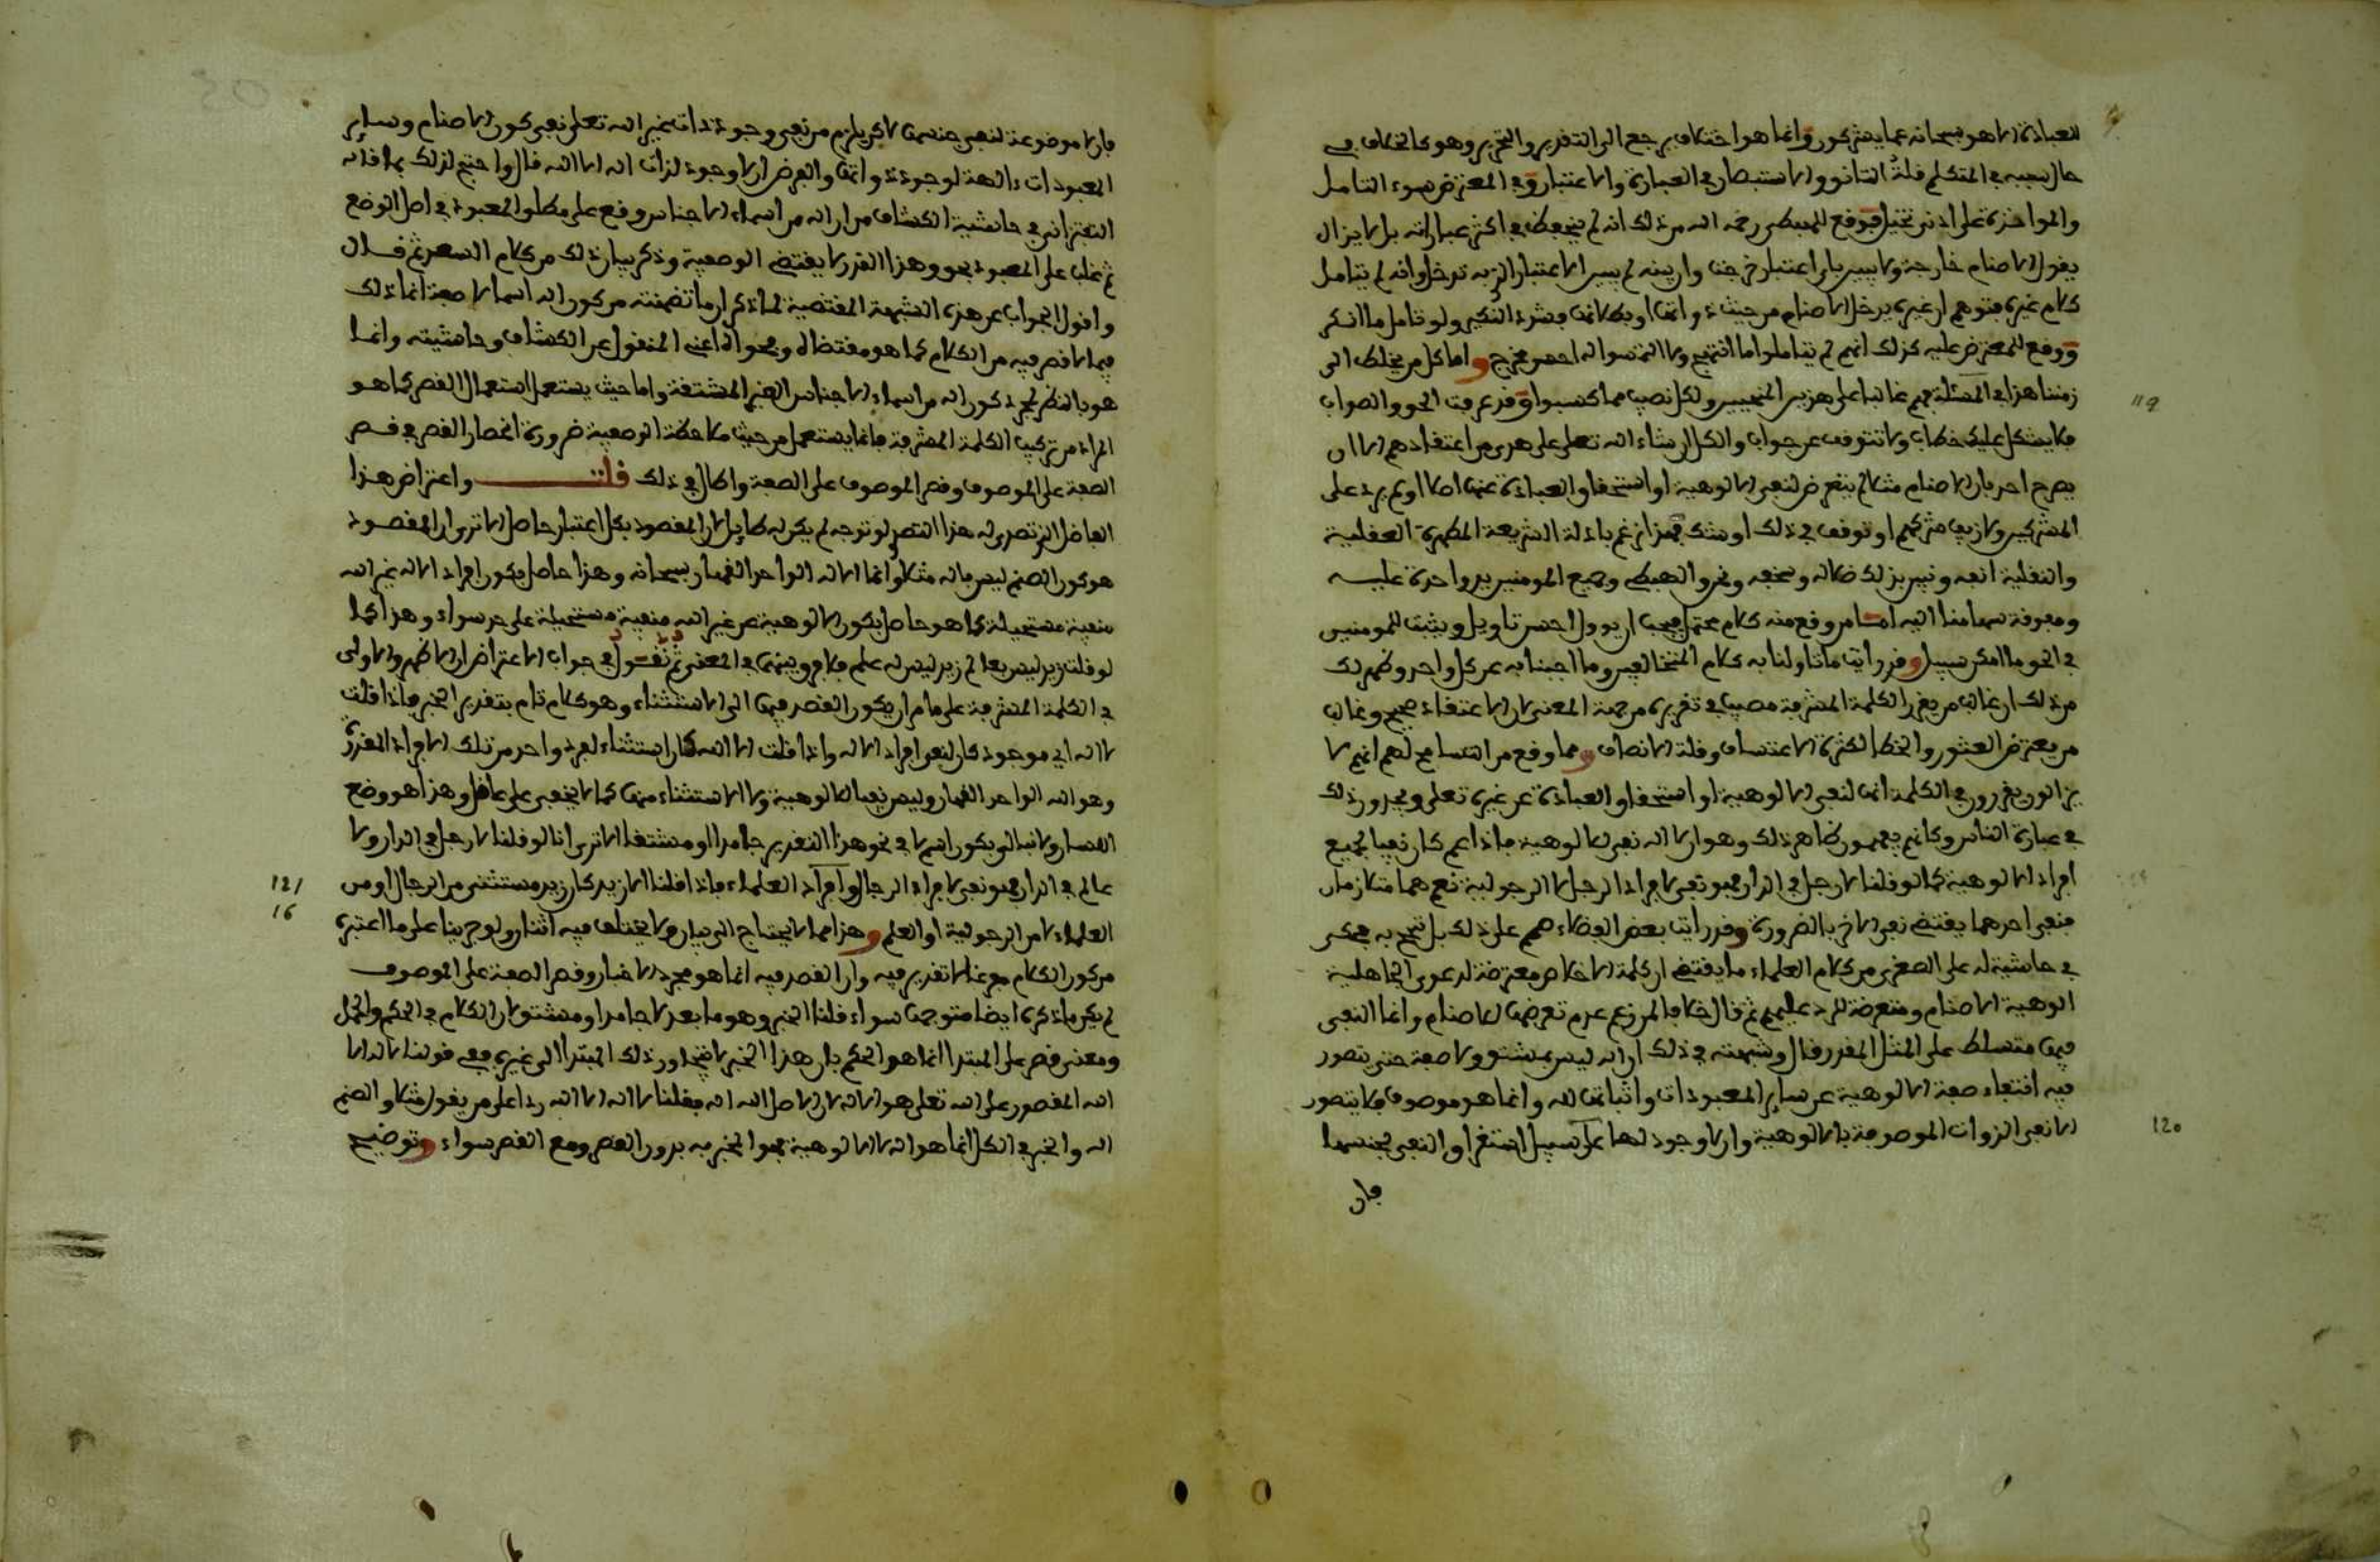 للعبادة الا هو سبحانه عما يشركون وانما هو اختلاف يرجع الى التقرير والتحرير وهو كالخلاف في
حال سببه في المتكلم قلة التانق والاستبطان في العبارة والاعتبار وفي المعترض سوء التامل
والمواخذة على ادنى تخيل فوقع للهبطي رحمه الله من ذلك انه لم يتحفظ في اكثر عباراته بل لا يزال
يقول الاصنام خارجة ولا يبين باي اعتبار خرجت وان بينه لم يبين الاعتبار الذي به تدخل وانه لم يتامل
كلام غيره فتوهم ان غيره يدخل الاصنام من حيث ذواتها او بطلانها فشدد النكير ولو تامل ما انكر
ووقع للمعترض عليه كذلك انهم لم يتاملوا ما انتهج ولا التمسوا له احسن مخرج واما كل من يخلط الى
زمننا هذا في المسئلة فهم غالبا على هذين المنهجين ولكل نصيب مما كسبوا وقد عرفت الحق والصواب
فلا يشكل عليك خطاب ولا تتوقف عن جواب والكل ان شاء الله تعلى على هدى من اعتقادهم الا ان
يصرح احد بان الاصنام مثلا لم يتعرض لنفي الالوهية او استحقاق العبادة عنها اصلا او لم يرد على
المشركين ولا زيف شركهم او توقف في ذلك او شك فهذا نرغم بادلة الشريعة المطهرة العقلية
والنقلية انفه ونبين بذلك ضلاله وسخفه ونحن والهبطي وجميع المومنين يد واحدة عليه
ومعرفة سهامنا اليه اما من وقع منه كلام محتمل فيجب ان يوول احسن تاويل ويثبت للمومنين
في الحق ما امكن سبيل وقد رايت ما تاولنا به كلام المتخالفين وما اجبنا به عن كل واحد وظهر لك
من ذلك ان غالب من يقرر الكلمة المشرفة مصيب في تقريره من جهة المعنى لان الاعتقاد صحيح وغالب
من يعترض العثور والخطا لكثرة الاعتساف وقلة الانصاف ومما وقع من التسامح لهم انهم لا
يزالون يقررون في الكلمة انها لنفي الالوهية او استحقاق العبادة عن غيره تعلى ويجرون ذلك
في عبارة الناس وكانهم يفهمون ظاهر ذلك وهو ان لا اله نفي للالوهية فاذا عم كان نفيا لجميع
افراد الالوهية كما لو قلنا لا رجل في الدار فهو نفي لافراد الرجل لا الرجولية نعم هما متلازمان
فنفي احدهما يقتضي نفي الاخر بالضرورة وقد رايت بعض الفضلاء صمم على ذلك بل تبجح به فحكى
في حاشية له على الصغرى من كلام العلماء ما يقتضي ان كلمة الاخلاص معترضة لدعوى الجاهلية
الوهية الاصنام ومتعرضة للرد عليهم ثم قال خلافا لمن زعم عدم تعرضها للاصنام وانما النفي
فيها متسلط على المثل المقدر قال وشبهته في ذلك ان اله ليس بمشتق ولا صفة حتى يتصور
فيه انتفاء صفة الالوهية عن ساير المعبودات واثباتها لله وانما هو موصوف فلا يتصور
الا نفي الذوات الموصوفة بالالوهية وان لا وجود لها على سبيل استغراق النفي لجنسها
فان
فان لا موضوعة لنفي جنسها لاكن يلزم من نفي وجود ذات غير الله تعلى نفي كون الاصنام وساير
المعبودات ءالهة لوجود ذواتها والفرض ان لا وجود لذات اله الا الله قالوا احتج لذلك بما قاله
التفتازاني في حاشية الكشاف من ان اله من اسماء الاجناس وقع على مطلق المعبود في اصل الوضع
ثم غلب على المعبود بحق وهذا القدر لا يقتضي الوصفية وذكر بيان ذلك من كلام السعد ثم قال
واقول الجواب عن هذه الشبهة المقتضية لما ذكر ان ما تضمنته من كون اله اسما لا صفة انما ذلك
فيما لا قصر فيه من الكلام كما هو مقتضاه وفحواه اعني المنقول عن الكشاف وحاشيته وانما
هو بالنظر لمجرد كون اله من اسماء الاجناس الغير المشتقة واما حيث يستعمل استعمال القصر كما هو
المراد من تركيب الكلمة المشرفة فانما يستعمل من حيث ملاحظة الوصفية ضرورة انحصار القصر في قصر
الصفة على الموصوف وقصر الموصوف على الصفة واطال في ذلك قلت واعتراض هذا
الفاضل الذي تصدى له هذا التصدي لو توجه لم يكن له طايل لان المقصود بكل اعتبار حاصل الا ترى ان المقصود
هو كون الصنم ليس باله مثلا وانما الاله الواحد القهار سبحانه وهذا حاصل بكون افراد الاله غير الله
منفية مستحيلة كما هو حاصل بكون الالوهية عن غير الله منفية مستحيلة على حد سواء وهذا كما
لو قلت زيد ليس بعالم زيد ليس له علم فلا فرق بينهما في المعنى ثم نقول في جواب الاعتراض ان الاظهر والاولى
في الكلمة المشرفة على ما مر ان يكون القصر فيها الى الاستثناء وهو كلام تام بتقدير الخبر فاذا قلت
لا اله اي موجود كان لنفي افراد الاله واذا قلت الا الله كان استثناء لفرد واحد من تلك الافراد المقررة
وهو الله الواحد القهار وليس نفيا للالوهية ولا الاستثناء منها كما لا يخفى على عاقل وهذا هو وضع
اللسان ولا نبالي بكون اسم لا في نحو هذا التقرير جامدا او مشتقا الا ترى انا لو قلنا لا رجل في الدار ولا
عالم في الدار فهو نفي لافراد الرجال وافراد العلماء فاذا قلنا الا زيد كان زيد مستثنى من الرجال او من
العلماء لا من الرجولية او العلم وهذا مما لا يحتاج الى بيان ولا يختلف فيه اثنان ولو جرينا على ما اعتبره
من كون الكلام مفرغا لا تقدير فيه وان القصر فيه انما هو مجرد الاخبار وقصر الصفة على الموصوف
لم يكن ما ذكره ايضا متوجها سواء قلنا الخبر وهو ما بعد لا جامدا او مشتق لان الكلام في الحكم والحمل
ومعنى قصر على المبتدا انما هو الحكم بان هذا الخبر لا يتجاوز ذلك المبتدا الى غيره ففي قولنا لا اله الا
الله المقصور على الله تعلى هو الاله لان الاصل الله اله فقلنا لا اله الا الله ردا على من يقول مثلا والصنم
اله والخبر في الكل انما هو اله لا الالوهية فهو المخبر به بدون القصر ومع القصر سواء وتوضيح
119
120
121
16